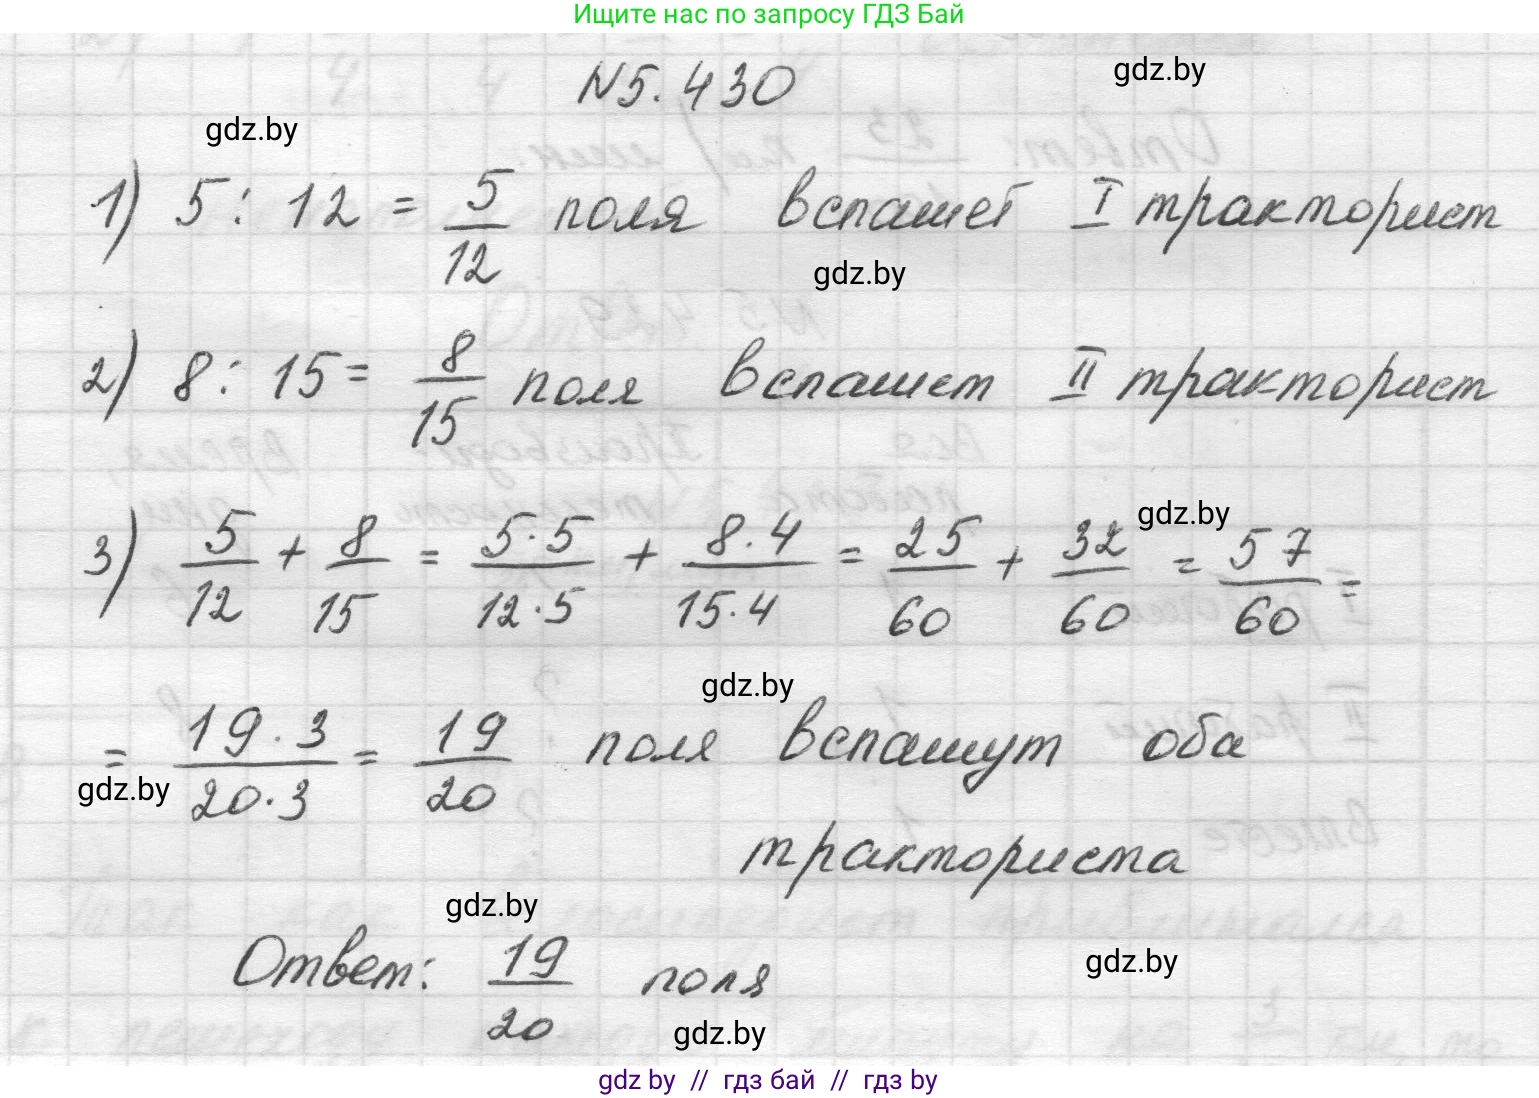 Ищите нас по запросу ГДЗ Бай
N5.430
gdz.by
gdz.by
1) 5 : 12 = 5/12 поля вспашет I тракторист
gdz.by
2) 8 : 15 = 8/15 поля вспашет II тракторист
gdz.by
3) 5/12 + 8/15 = 5·5/12·5 + 8·4/15·4 = 25/60 + 32/60 = 57/60 =
gdz.by
= 19·3/20·3 = 19/20 поля вспашут оба
gdz.by
тракториста
gdz.by
Ответ: 19/20 поля
gdz.by
gdz.by
gdz by // гдз бай // гдз by